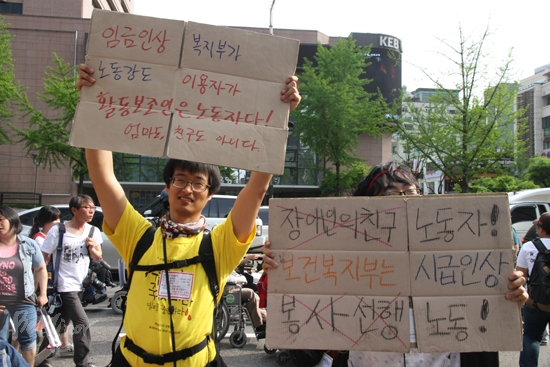 임금인상 복지부가
노동강도 이용자가
활동보조인은 노동자다!
엄마도 친구도 아니다
장애인의친구 노동자!
보건복지부는 시급인상
봉사선행 노동!
KEB